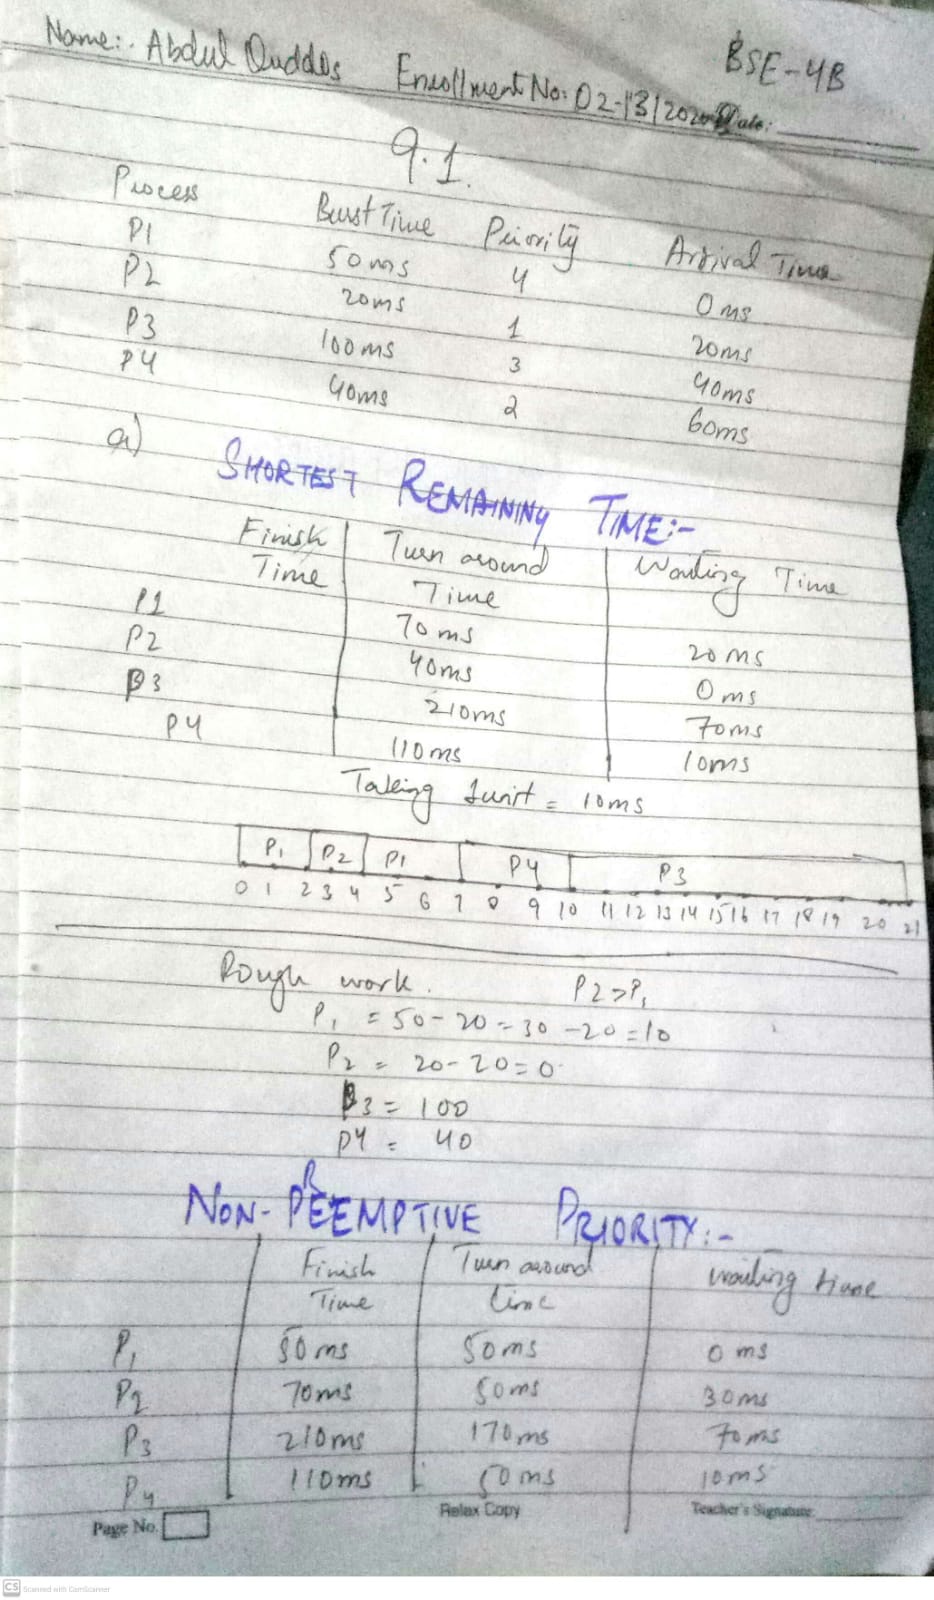 Name:. Abdul Quddos Enrollment No: 02-131202 BSE-4B
Date:
Q.1.
Process Burst Time Priority Arrival Time
P1 50ms 4 0ms
P2 20ms 1 20ms
P3 100ms 3 40ms
P4 40ms 2 60ms
a) SHORTEST REMAINING TIME:-
Finish Time Turn around Time Waiting Time
P1 70ms 20ms
P2 40ms 0ms
P3 210ms 70ms
P4 110ms 10ms
Taking 1unit = 10ms
P1 P2 P1 P4 P3
0 1 2 3 4 5 6 7 8 9 10 11 12 13 14 15 16 17 18 19 20 21
Rough work. P2>P1
P1 = 50-20=30-20=10
P2 = 20-20=0
P3 = 100
P4 = 40
NON-PREEMPTIVE PRIORITY:-
Finish Time Turn around time waiting time
P1 50ms 50ms 0ms
P2 70ms 50ms 30ms
P3 210ms 170ms 70ms
P4 110ms 50ms 10ms
Page No. Relax Copy Teacher's Signature
CS Scanned with CamScanner